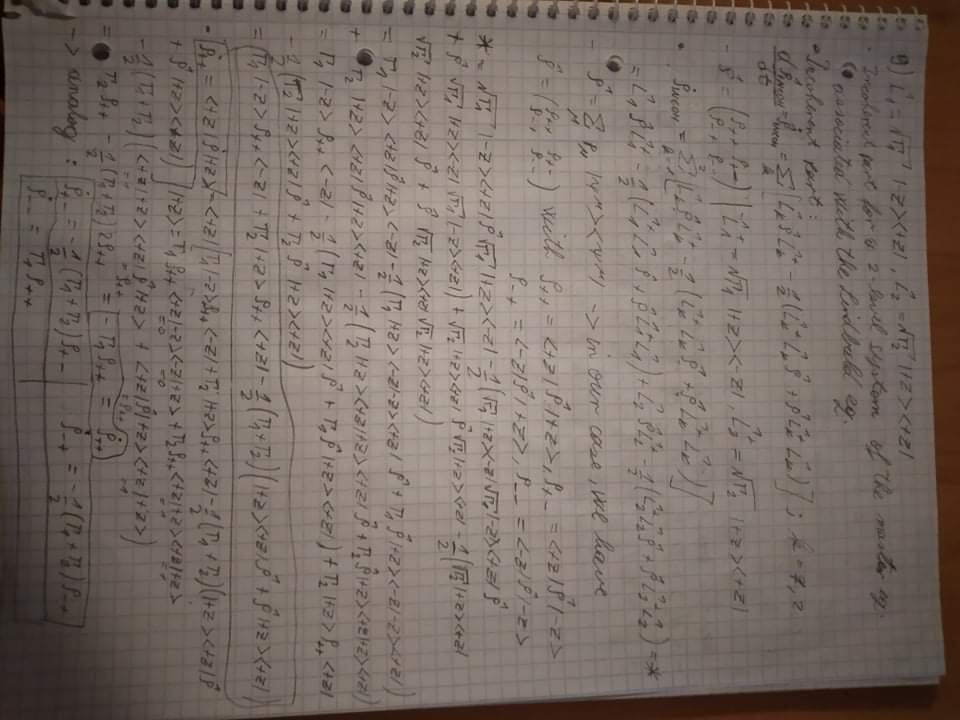 9) L̂₁ = √Γ₁ |-z><+z|, L̂₂ = √Γ₂ |+z><+z|
• Incoherent part for a 2-level system of the master eq.
associated with the Lindblad eq.
• Incoherent part:
dρ̂incoh/dt = ρ̇incoh = Σ_k [L̂k ρ̂ L̂k⁺ - 1/2 (L̂k⁺ L̂k ρ̂ + ρ̂ L̂k⁺ L̂k)]; k = 1, 2
- ρ̂ = (ρ++ ρ+- / ρ-+ ρ--) | L̂₁⁺ = √Γ₁ |+z><-z|, L̂₂⁺ = √Γ₂ |+z><+z|
• ρ̇incoh = Σ_{k=1}^{2} [L̂k ρ̂ L̂k⁺ - 1/2 (L̂k⁺ L̂k ρ̂ + ρ̂ L̂k⁺ L̂k)]
= L̂₁ ρ̂ L̂₁⁺ - 1/2 (L̂₁⁺ L̂₁ ρ̂ + ρ̂ L̂₁⁺ L̂₁) + L̂₂ ρ̂ L̂₂⁺ - 1/2 (L̂₂⁺ L̂₂ ρ̂ + ρ̂ L̂₂⁺ L̂₂) = *
- ρ̂ = Σ |ψ><ψ| -> in our case, we have
ρ̂ = (ρ++ ρ+- / ρ-+ ρ--) with ρ++ = <+z|ρ̂|+z>, ρ+- = <+z|ρ̂|-z>
ρ-+ = <-z|ρ̂|+z>, ρ-- = <-z|ρ̂|-z>
* = √Γ₁ |-z><+z| ρ̂ √Γ₁ |+z><-z| - 1/2 (√Γ₁ |+z><-z| √Γ₁ |-z><+z| ρ̂
+ ρ̂ √Γ₁ |+z><-z| √Γ₁ |-z><+z|) + √Γ₂ |+z><+z| ρ̂ √Γ₂ |+z><+z| - 1/2 (√Γ₂ |+z><+z|
√Γ₂ |+z><+z| ρ̂ + ρ̂ √Γ₂ |+z><+z| √Γ₂ |+z><+z|)
= Γ₁ |-z><+z|ρ̂|+z><-z| - 1/2 (Γ₁ |+z><-z|-z><+z| ρ̂ + Γ₁ ρ̂ |+z><-z|-z><+z|)
+ Γ₂ |+z><+z|ρ̂|+z><+z| - 1/2 (Γ₂ |+z><+z|+z><+z| ρ̂ + Γ₂ ρ̂ |+z><+z|+z><+z|)
= Γ₁ |-z> ρ++ <-z| - 1/2 (Γ₁ |+z><+z| ρ̂ + Γ₁ ρ̂ |+z><+z|) + Γ₂ |+z> ρ++ <+z|
- 1/2 (Γ₂ |+z><+z| ρ̂ + Γ₂ ρ̂ |+z><+z|)
= Γ₁ |-z> ρ++ <-z| + Γ₂ |+z> ρ++ <+z| - 1/2 (Γ₁ + Γ₂) (|+z><+z| ρ̂ + ρ̂ |+z><+z|)
• ρ̇++ = <+z|ρ̇|+z> = <+z| [Γ₁ |-z> ρ++ <-z| + Γ₂ |+z> ρ++ <+z| - 1/2 (Γ₁ + Γ₂) (|+z><+z| ρ̂
+ ρ̂ |+z><+z|)] |+z> = Γ₁ ρ++ <+z|-z><-z|+z> + Γ₂ ρ++ <+z|+z><+z|+z>
- 1/2 (Γ₁ + Γ₂) (<+z|+z><+z|ρ̂|+z> + <+z|ρ̂|+z><+z|+z>)
= Γ₂ ρ++ - 1/2 (Γ₁ + Γ₂) 2ρ++ = - Γ₁ ρ++ = ρ̇++
-> analog: ρ̇+- = - 1/2 (Γ₁ + Γ₂) ρ+- ρ̇-+ = - 1/2 (Γ₁ + Γ₂) ρ-+
ρ̇-- = Γ₁ ρ++